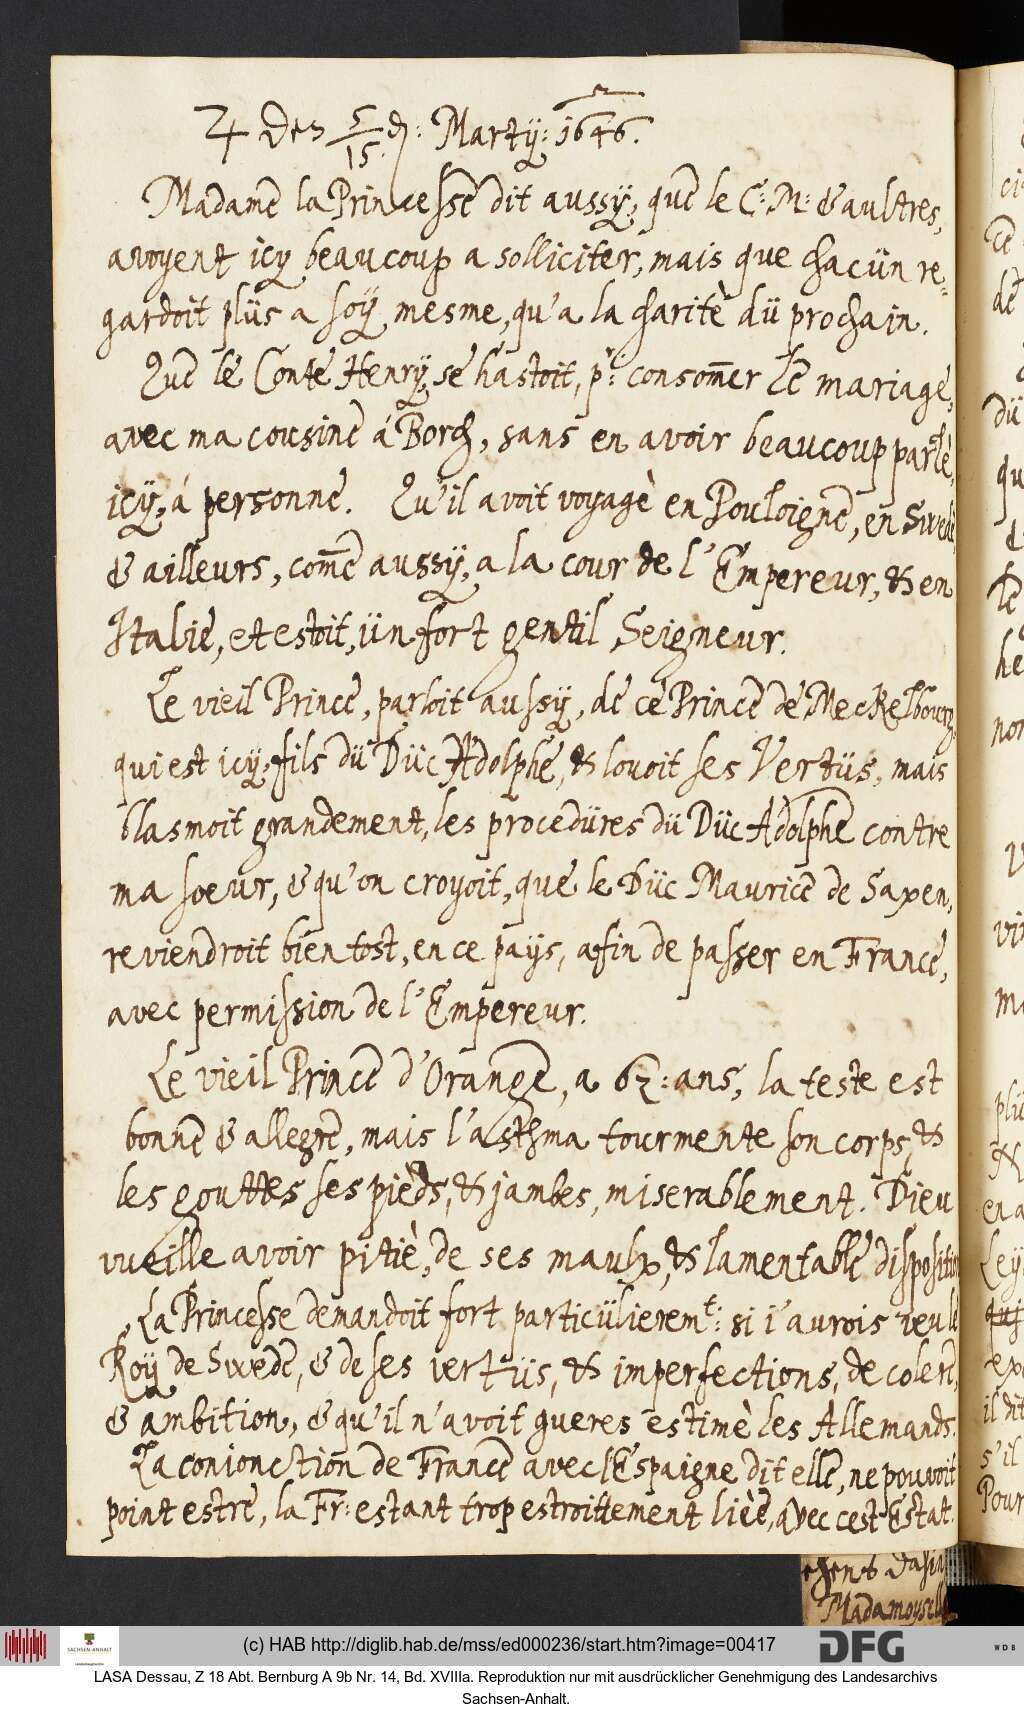 ♃ den 5/15. d. Martÿ: 1646.
Madame la Princesse dit aussÿ, que le C: M: & aultres,
avoyent icy beaucoup a solliciter, mais que chacün re-
gardoit plüs a soÿ mesme, qu'a la charitè dü prochain.
Que le Conte Henrÿ, se hastoit, pr: consom̄er le mariage,
avec ma cousine á Borch, sans en avoir beaucoup parlè,
icÿ, á personne. Qu'il avoit voyagè en Pouloigne, en Swede,
& ailleurs, com̄e aussÿ, a la cour de l'Empereur, & en
Italie, et estoit, ün fort gentil Seigneur.
Le vieil Prince, parloit aussÿ, de ce Prince de Meckelbourg,
qui est icÿ, fils dü Düc Adolphe, & louoit ses Vertüs, mais
blasmoit grandement, les procedüres dü Düc Adolphe contre
ma soeur, & qu'on croyoit, que le Düc Maurice de Saxen,
reviendroit bien tost, en ce paÿs, afin de passer en France,
avec permission de l'Empereur.
Le vieil Prince d'Orange, a 62: ans, la teste est
bonne & allegre, mais l'asthma tourmente son corps, &
les gouttes ses pièds, & jambes, miserablement. Dieu
vueille avoir pitiè, de ses maulx, & lamentable disposition
La Princesse demandoit fort particülieremt: si i'aurois veu le
Roÿ de Swede, & de ses vertüs, & imperfections, de colere,
& ambition, & qu'il n'avoit gueres estimè les Allemands.
La conionction de France avec l'Espaigne dit elle, ne pouvoit
point estre, la Fr: estant trop estroittement lièe, avec cest Estat.
Madamoyselle
SACHSEN-ANHALT
(c) HAB http://diglib.hab.de/mss/ed000236/start.htm?image=00417
DFG
WDB
LASA Dessau, Z 18 Abt. Bernburg A 9b Nr. 14, Bd. XVIIIa. Reproduktion nur mit ausdrücklicher Genehmigung des Landesarchivs
Sachsen-Anhalt.